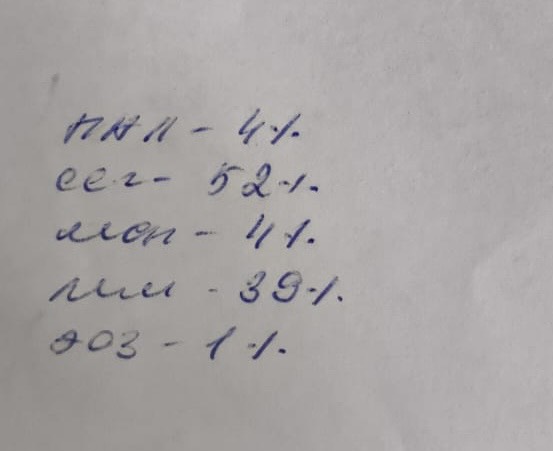 пал - 4%
сег - 52%.
мон - 4%.
лим - 39%.
эоз - 1%.